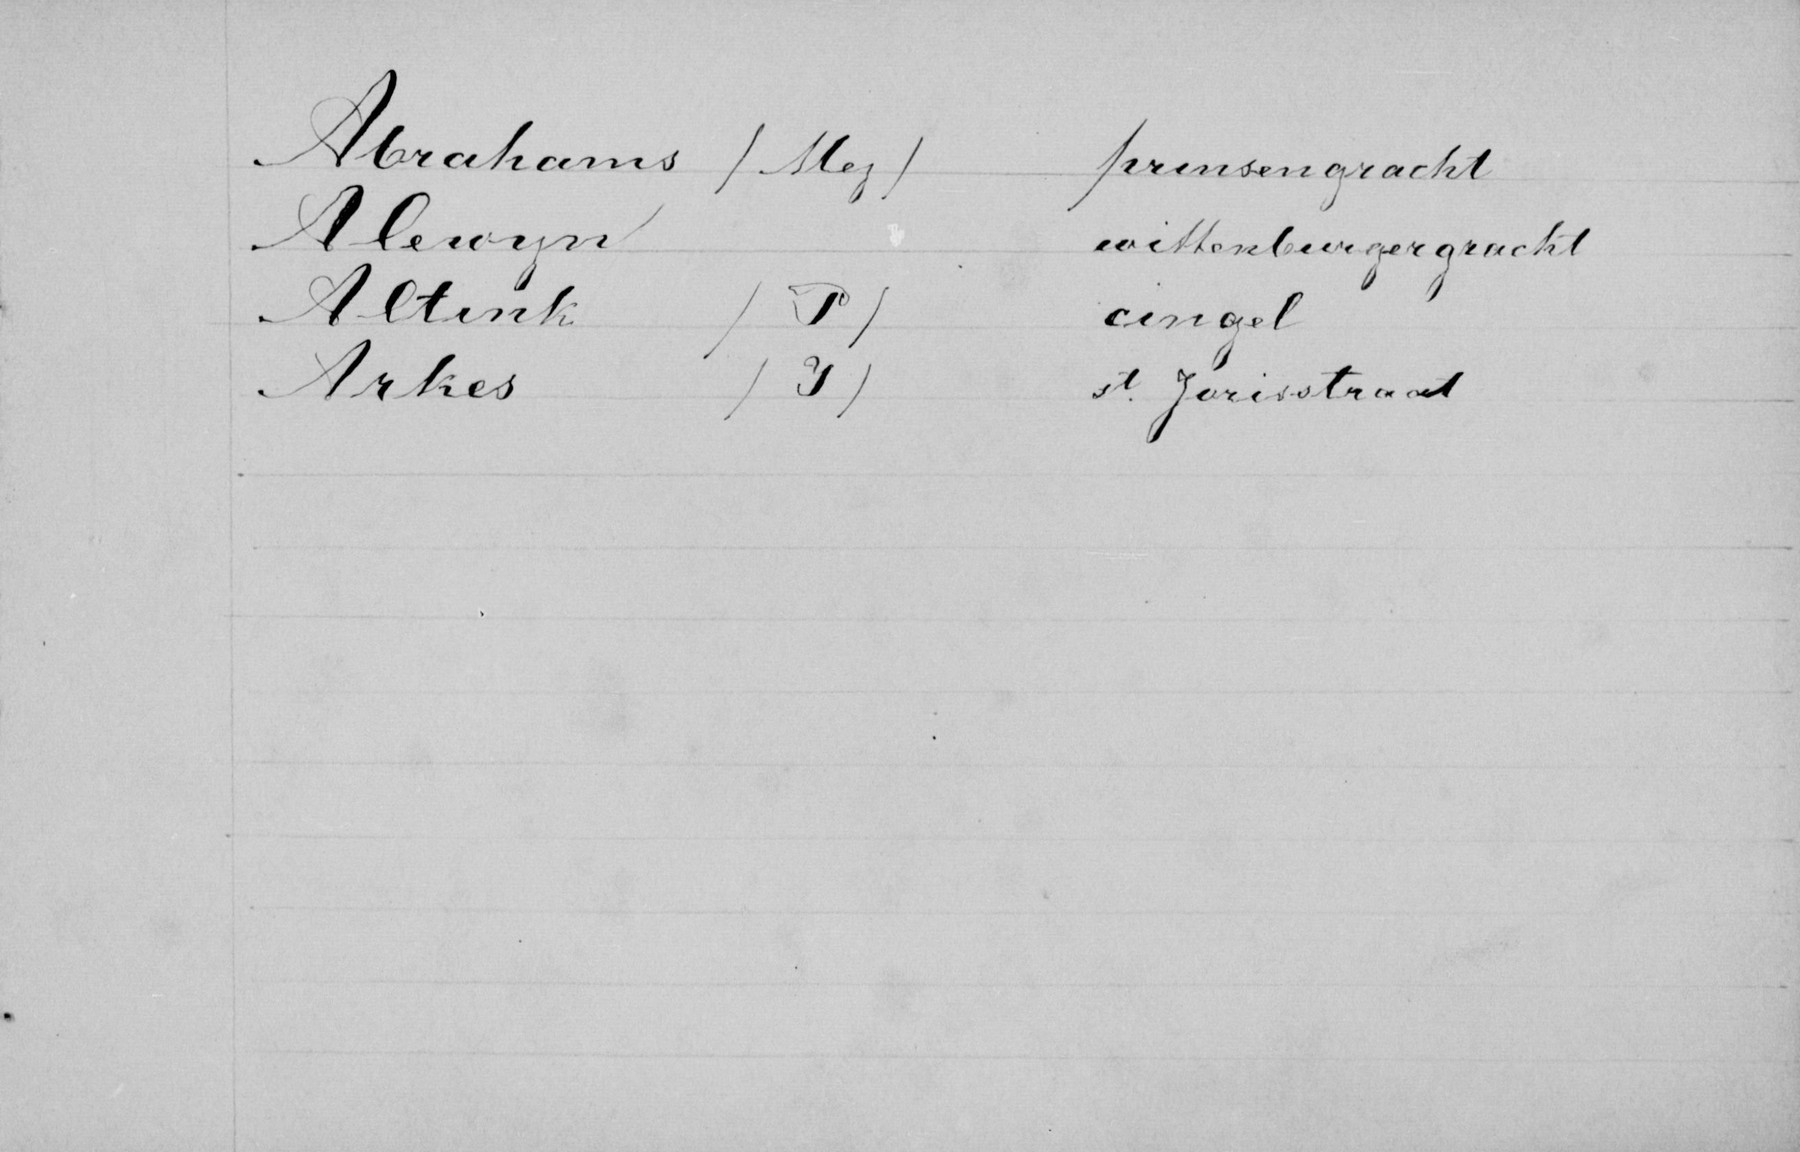 Abrahams / Mej / prinsengracht
Alewyn wittenburgergracht
Altink / P / cingel
Arkes / J / st. Jorisstraat